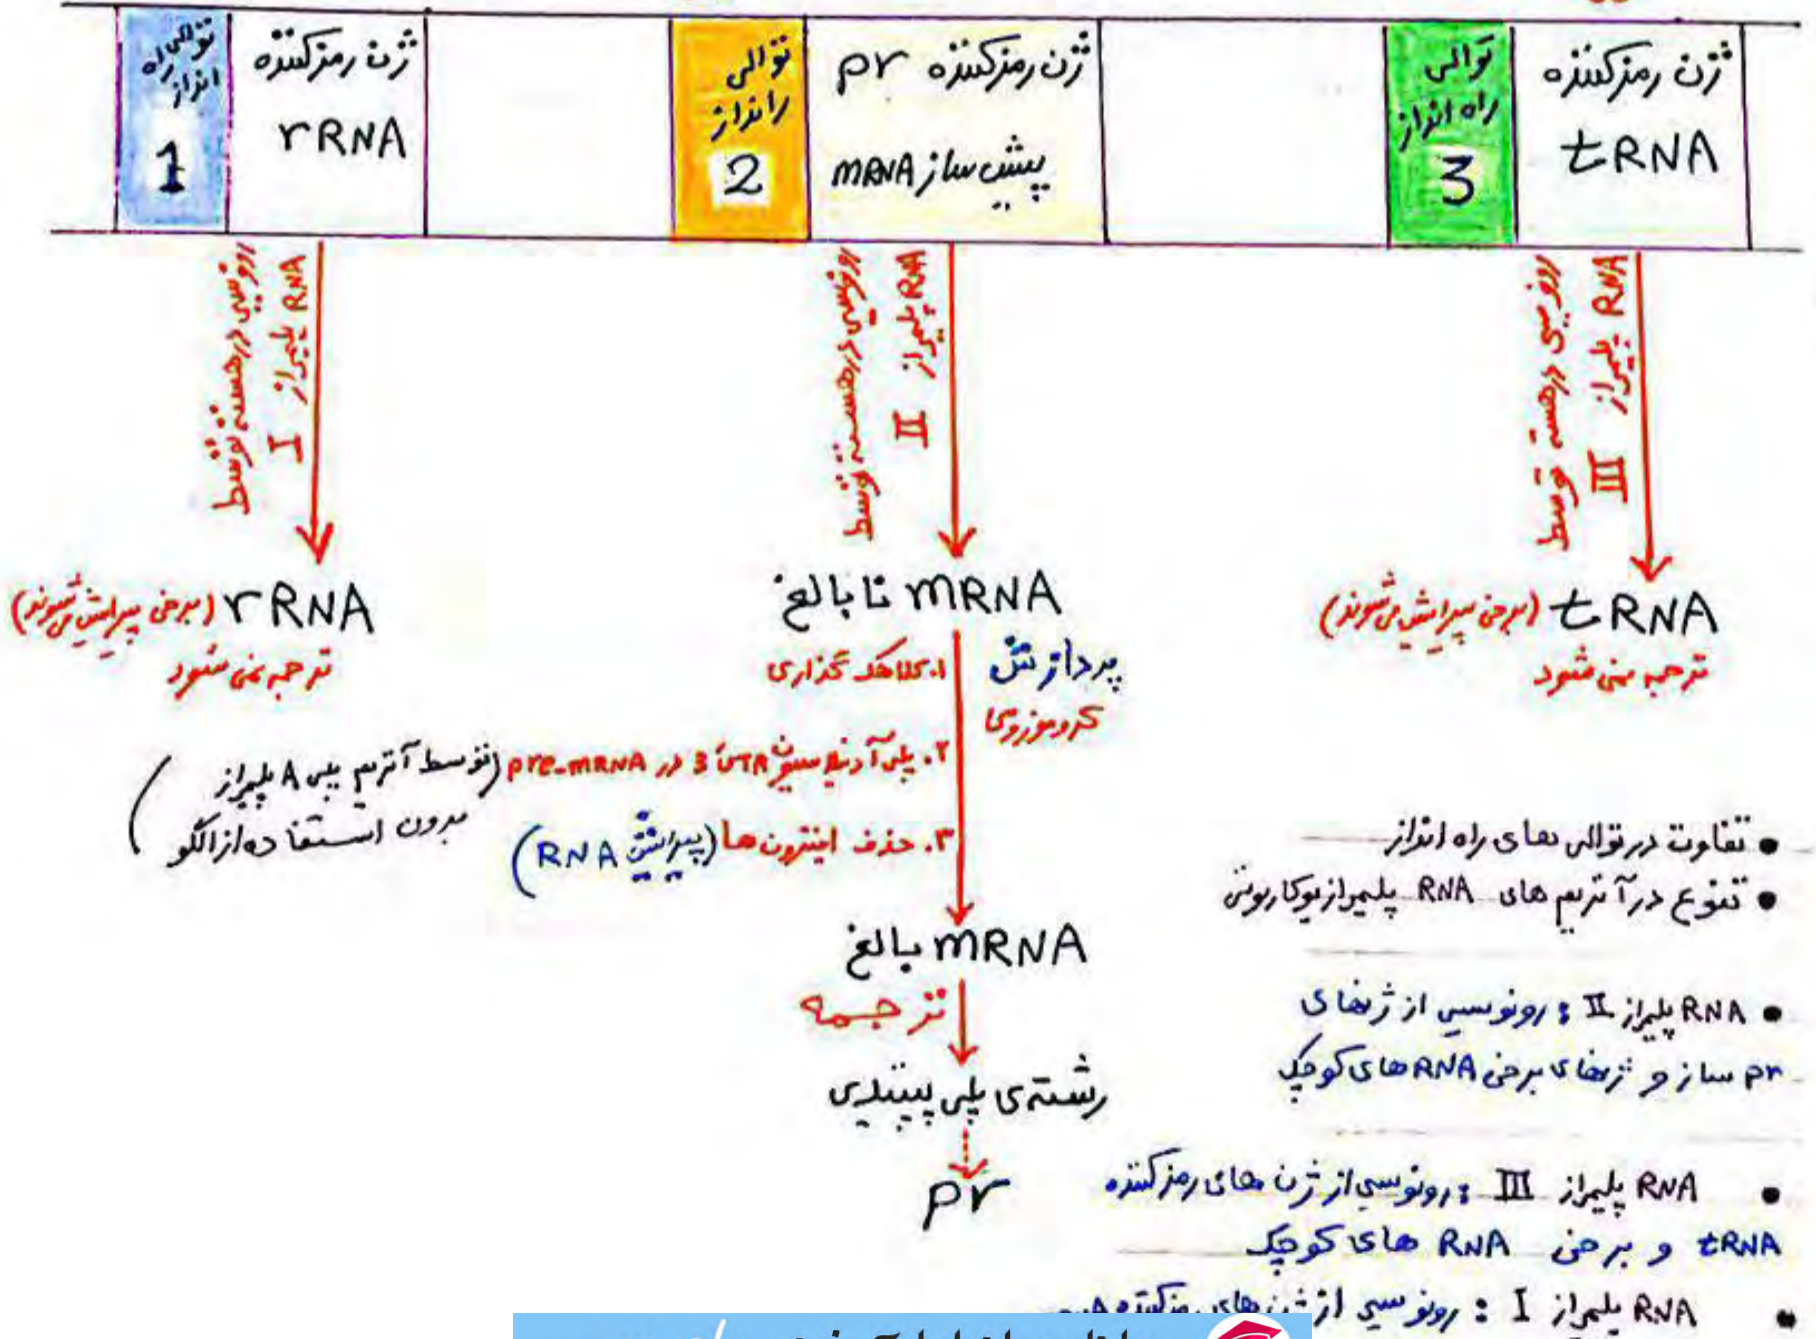 توالی راه انداز 1
ژن رمزکننده rRNA
توالی راه‌انداز 2
ژن رمزکننده pr
پیش ساز mRNA
توالی راه انداز 3
ژن رمزکننده tRNA
رونویسی در هسته توسط
RNA پلیمراز I
رونویسی در هسته توسط
RNA پلیمراز II
رونویسی در هسته توسط
RNA پلیمراز III
rRNA (برخی پیرایش می‌شوند)
ترجمه نمی شود
mRNA نابالغ
tRNA (برخی پیرایش می‌شوند)
ترجمه نمی شود
پردازش
۱. کلاهک گذاری
۲. پلی آدنیلاسیون 3 در pre-mRNA (توسط آنزیم پلی A پلیمراز
بدون استفاده از الگو)
۳. حذف اینترون ها (پیرایش RNA)
mRNA بالغ
ترجمه
رشته‌ی پلی پپتیدی
pr
• تفاوت در توالی های راه انداز
• تنوع در آنزیم های RNA پلیمراز یوکاریوتی
• RNA پلیمراز II : رونویسی از ژنهای
pr ساز و ژنهای برخی RNA های کوچک
• RNA پلیمراز III : رونویسی از ژن های رمزکننده
tRNA و برخی RNA های کوچک
• RNA پلیمراز I : رونویسی از ژن های رمزکننده